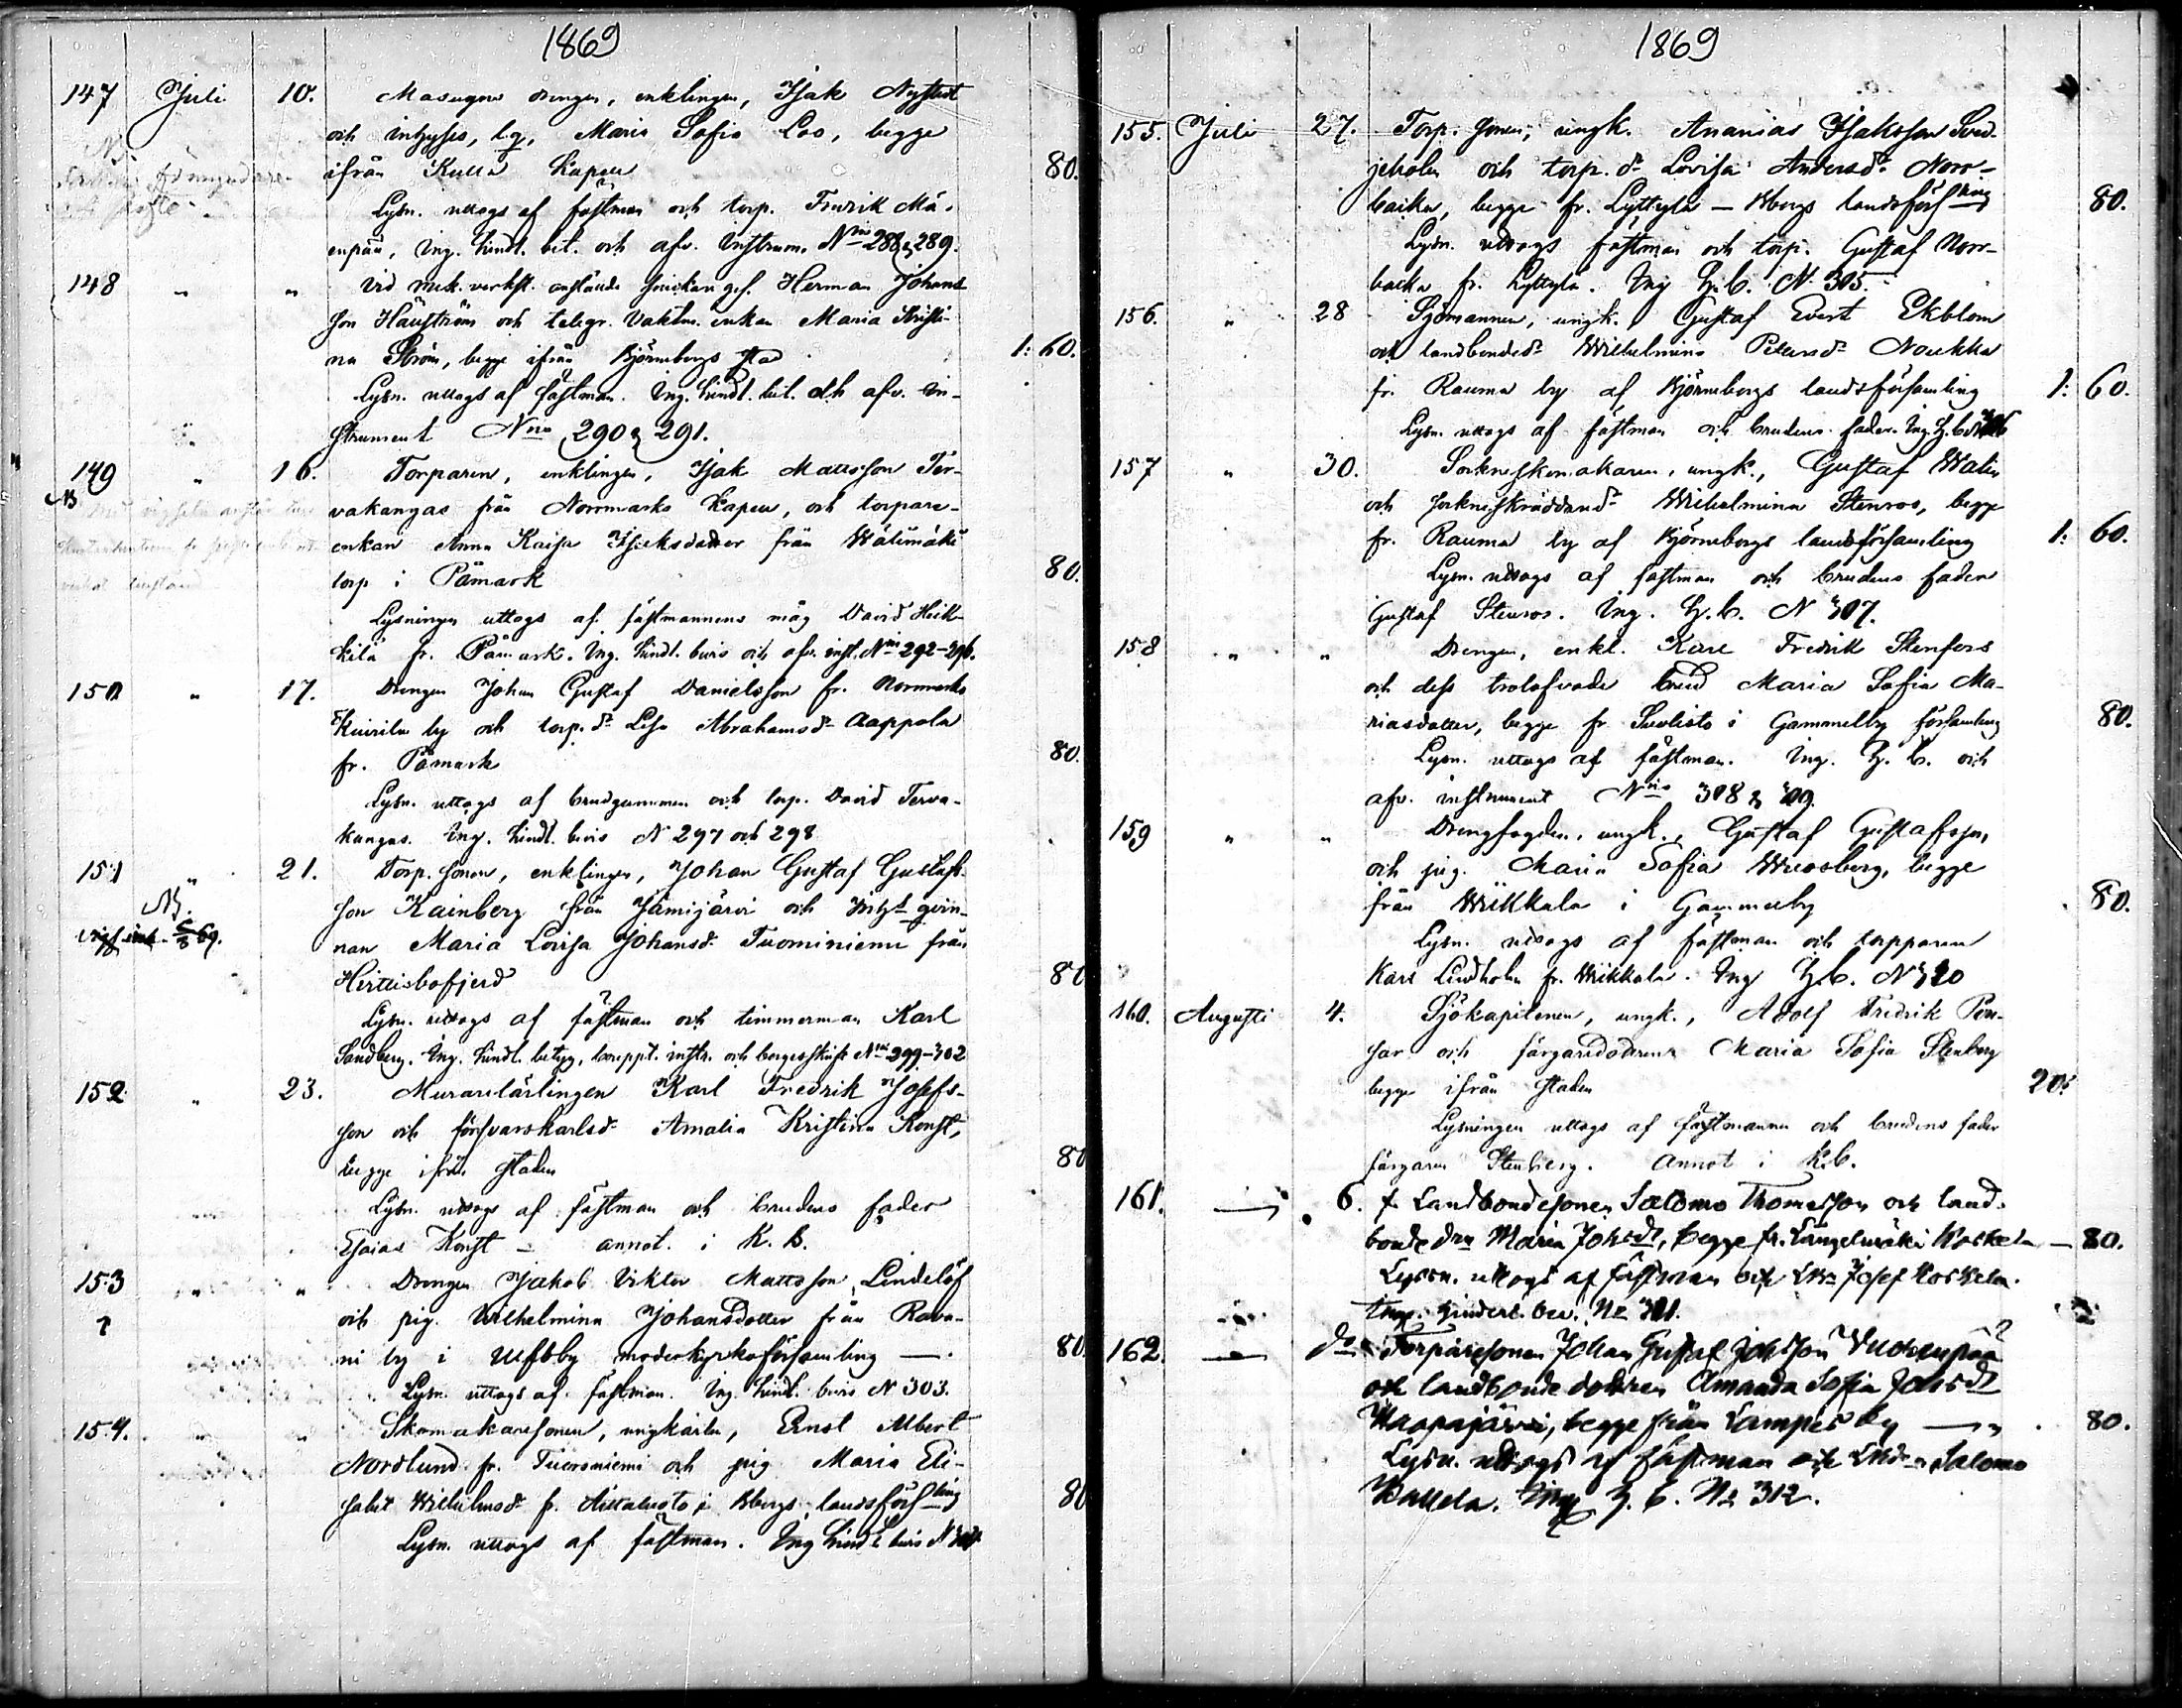 1869
147 Juli 10. Masugns drengen, enklingen, Isak Nystedt
och inhyses, lg, Maria Sofia Loo, begge
ifrån Kulla Kapell 80.
Lysn. uttogs af fästman och torp. Fredrik Mä-
enpää, Ing. hindl. bet. och afv. Instrum. Nris 288 & 289.
148 " " Vid mek. verkst. anstälde snickaregs. Herman Johans
son Häggström och telegr. vaktm. enkan Maria Kristi-
na Ström, begge ifrån Björneborgs stad 1: 60.
Lysn. uttogs af fästman. Ing. hindl. bet. och afv. in-
strument Nris 290 & 291.
149 " 16. Torparen, enklingen, Isak Mattsson Ter-
NB
vakangas från Norrmarks Kapell, och torpare-
enkan Anna Kaisa Isaksdotter från Wälimäki
torp i Påmark 80.
Lysningen uttogs af fästmannens måg David Heik-
kilä fr. Påmark. Ing. hindl. bevis och afv. inst. Nris 292-296.
150 " 17. Drengen Johan Gustaf Danielsson fr. Norrmarks
by och torp. dr Lisa Abrahamsdr Aappola
fr. Påmark 80.
Lysn. uttogs af brudgummen och torp. David Terva-
kangas. Ing. hindl. bevis N 297 och 298
151 " 21. Torp. sonen, enklingen, Johan Gustaf Gustafs-
NB.
son Kainberg från Jämijärvi och inhys qvin-
69.
nan Maria Lovisa Johansdr Tuominiemi från
Hvittisbofjerd 80
Lysn. uttogs af fästman och timmerman Karl
Sandberg. Ing. hindl. betyg, instr. och borgesskrift Nris 299-302
152 " 23. Murarelärlingen Karl Fredrik Josefs-
son och försvarskarlsdr Amalia Kristina Konst,
begge ifrån staden 80
Lysn. uttogs af fästman och brudens fader
Esaias Konst - annot. i K. B.
153 " " Drengen Jakob Viktor Mattsson Lindelöf
och pig. Wilhelmina Johansdotter från Rava-
ni by i Ulfsby moderkyrkoförsamling — 80.
Lysn. uttogs af fästman. Ing. hindl. bevis N 303.
154. " " Skomakaresonen, ungkarlen, Ernst Albert
Nordlund fr. Tuorsniemi och pig Maria Eli-
sabet Wilhelmsdr fr. Aittaluoto i Bborgs landsförsling 80
Lysn. uttogs af fästman. Ing hindl bevis N 304
1869
155. Juli 27. Torp. sonen, ungk. Ananias Isaksson Sved-
jeholm och torp. dr Lovisa Andersdr Norr-
backa, begge fr. Lyttylä - Bborgs landsförsling 80.
Lysn. uttogs fästman och torp. Gustaf Norr-
backa fr. Lyttylä. Ing H.b. N 305.
156. " 28 Sjömannen, ungk. Gustaf Evert Ekblom
och landbondedr Wilhelmina Petersdr Noukka
fr. Rauma by af Björneborgs landsförsamling 1: 60.
Lysn. uttogs af fästman och brudens fader. Ing. H.b. N 306
157 " 30. Sockneskomakaren, ungk., Gustaf Walin
och sockneskräddaredr Wilhelmina Stenroos, begge
fr. Rauma by af Björneborgs landsförsamling 1: 60.
Lysn. uttogs af fästman och brudens fader
Gustaf Stenroos. Ing. H.b. N 307.
158 " " Drengen, enkl. Karl Fredrik Stenfors
och dess trolofvade brud Maria Sofia Ma-
riasdotter, begge fr. Suolisto i Gammelby församling 80.
Lysn. uttogs af fästman. Ing. H. b. och
afv. instrument Nris 308 & 309.
159 " " Drengfogden, ungk., Gustaf Gustafsson,
och pig. Maria Sofia Wuosberg, begge
från Wiikkala i Gammelby 80.
Lysn. uttogs af fästman och torpparen
Karl Lindholm fr. Wiikkala. Ing H.b. N 310
160. Augusti 4. Sjökapitenen, ungk., Adolf Fredrik Pen-
sar och färgaredottren Maria Sofia Stenberg
begge ifrån staden 20:
Lysningen uttogs af fästmannen och brudens fader
färgaren Stenberg. Annot i K.b.
161. — 6. Landbondesonen Salomo Thomasson och land-
bonde drn Maria Johsdr, begge fr. Längelmäki Koskela — 80.
Lysn. uttogs af fästman och Lbn Josef Koskela.
Ing. hinderl. bev. No 311.
162. — do Torparesonen Johan Gustaf Johsson Vuorenpää
och landbonde dottren Amanda Sofia Johsdr
Haapajärvi, begge från Lampis by — 80.
Lysn. uttogs af fästman och Lbdn Salomo
Ing H. b. No 312.